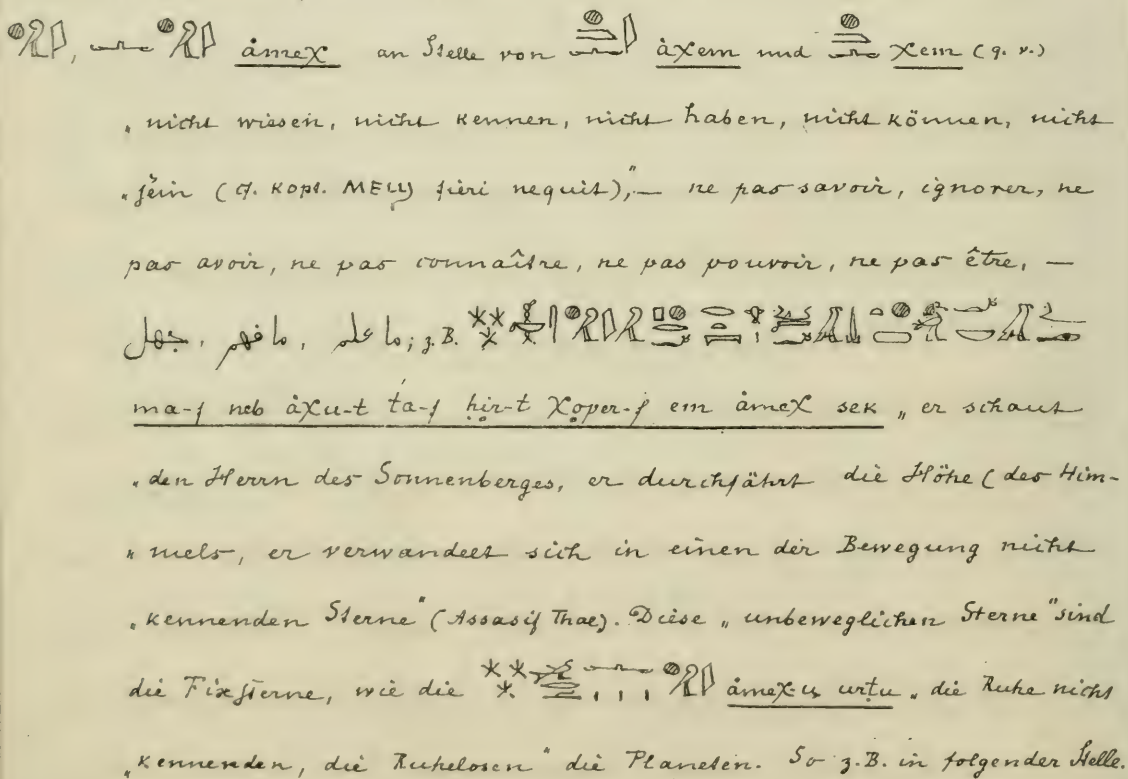 åmeχ an Stelle von åχem und χem (q. v.)
„nicht wissen, nicht kennen, nicht haben, nicht können, nicht
„sein (cf. kopt. ⲙⲉϣ fieri nequit)", — ne pas savoir, ignorer, ne
pas avoir, ne pas connaître, ne pas pouvoir, ne pas être, —
جهل ، ما فهم ، ما علم; z. B.
ma-f neb åχu-t ta-f ḥir-t χoper-f em åmeχ sek „er schaut
„den Herrn des Sonnenberges, er durchfährt die Höhe (des Him-
„mels, er verwandelt sich in einen der Bewegung nicht
„kennenden Sterne" (Assasif Thal). Diese „unbeweglichen Sterne" sind
die Fixsterne, wie die åmeχ-u urtu „die Ruhe nicht
„kennenden, die Ruhelosen" die Planeten. So z. B. in folgender Stelle.